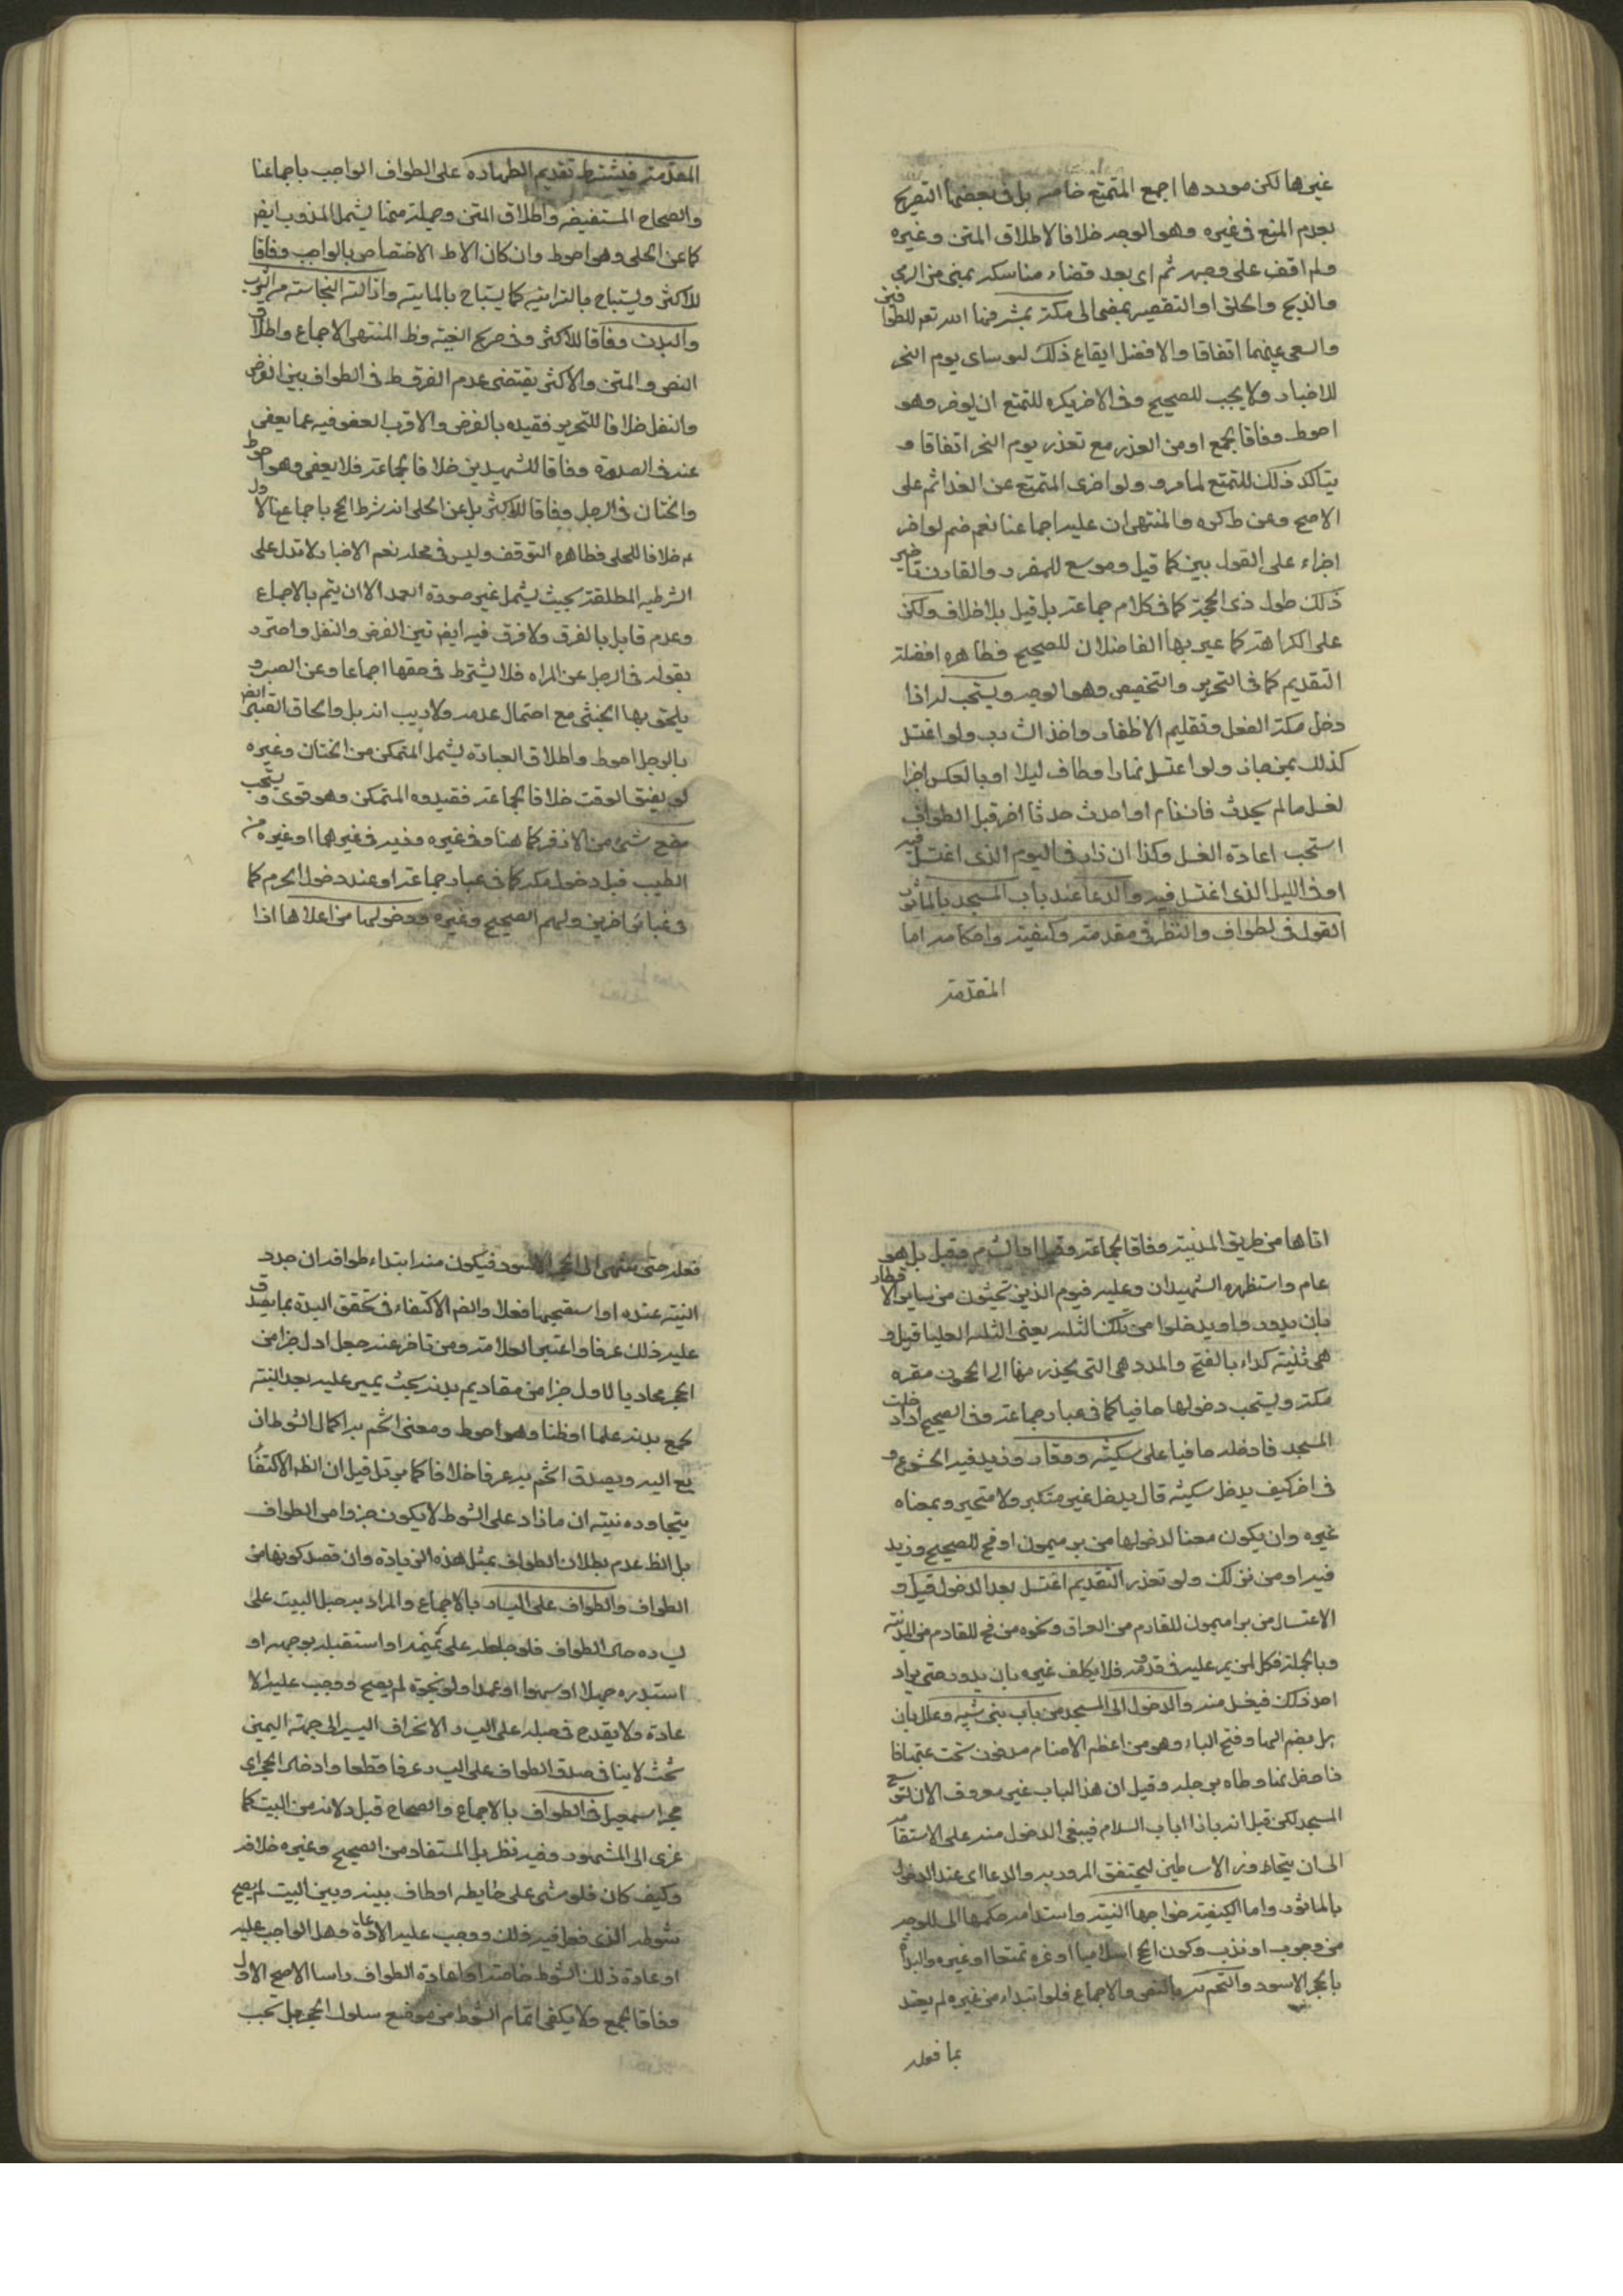 غيرها لكن موردها اجمع المتمتع خاصه بل في بعضها التصريح
بعدم المنع في غيره وهو الوجه خلافا لاطلاق المتن وغيره
ولم اقف على وجهه ثم اى بعد قضاء مناسكه بمنى من الرمى
والذبح والحلق او التقصير يمضى الى مكة بشرفها الله تعم للطوافين
والسعي بينهما اتفاقا والافضل ايقاع ذلك لو ساى يوم النحر
للاخبار ولا يجب للصحيح وفى الاخر يكره للتمتع ان يوخر وهو
احوط وفاقا لجمع او من العذر مع تعذر يوم النحر اتفاقا و
يتاكد ذلك للتمتع لما مر و ولو اخرى المتمتع عن الغد اثم على
الاصح وعن ط كره والمنتهى ان عليه اجماعنا نعم ضم لو اخر
اجزاء على القول بين كما قيل وموسع للمفرد والقارن تاخير
ذلك طول ذى الحجة كما في كلام جماعة بل قيل بلا خلاف ولكن
على الكراهة كما عبر بها الفاضلان للصحيح فظاهره افضلة
التقديم كما في التحرير والتخيص وهو الوجه ويستحب له اذا
دخل مكة الغسل وتقليم الاظفار واخذ الشارب ولو اغتسل
كذلك بمنى جاز ولو اغتسل نهارا وطاف ليلا او بالعكس اجزا
لغسله ما لم يحدث فان نام او احدث حدثا اخر قبل الطواف
استحب اعادة الغسل وكذا ان زاد في اليوم الذى اغتسل فيه
او في الليل الذى اغتسل فيه والدعا عند باب المسجد بالماثور
القول في لطواف والنظر في مقدمته وكيفيته واحكامه اما
المقدمة
المقدمة فيشترط تقديم الطهاده على الطواف الواجب باجماعنا
والصحاح المستفيضه واطلاق المتن وجملة منها يشمل المندوب ايضا
كما عن الحلى وهو احوط وان كان الاظ الاختصاص بالواجب وفاقا
للاكثر ويستباح بالترابيه كما يستباح بالمايته وازالته النجاسته من الثوب
والبدن وفاقا للاكثر وفى صريح الغنيه وظ المنتهى الاجماع واطلاق
النص والمتن والاكثر يقتضى عدم الفرق ط في الطواف بين الفرض
والنفل خلافا للتحرير فقيده بالفرض والاقرب العفو فيه عما يعفى
عنه في الصلوة وفاقا للشهيدين خلافا لجماعة فلا يعفى وهو احوط
والختان في الرجل وفاقا للاكثر بل عن الحلى انه شرط الحج باجماعنا الاول
خلافا للحلى فظاهره التوقف وليس في محله نعم الاخبار لا تدل على
الشرطيه المطلقة بحيث يشمل غير صورة العمد الا ان يتم بالاجماع
وعدم قايل بالفرق ولا فرق فيه ايضم بين الفرض والنفل واحترد
بقوله في الرجل عن المراه فلا يشترط في حقها اجماعا وعن الصبي و
يلحق بها الخنثى مع احتمال عدمه ولا ريب انه بل والحاق الصبى
بالرجل احوط واطلاق العباده يشمل المتمكن من الختان وغيره
لو يضيق الوقت خلافا لجماعة فقيدوه المتمكن وهو قوى و يستحب
مضغ شئ من الاذخر كما هنا وفى غيره وغيره في غيرهما او غيره من
الطيب قبل دخول مكه كما في عبار جماعة او عند دخول الحرم كما
في عبائر اخرين ولهم الصحيح وغيره ودخولها من اعلاها اذا
اتاها من طريق المدينة وفاقا لجماعة وقيل او الشام وقيل بل هو
عام واستظهره الشهيدان وعليه فيوم الذين تجيئون من سايرالاقطار
بان يدور واويدخلوا من تلك الثلمه يعنى الثلمه العليا قيل و
هى ثنية كداء بالفتح والمد وهى التى يحذر منها الى الحجون مقبره
مكة ويستحب دخولها حافيا كما في عبار جماعة وفى الصحيح اذا دخلت
المسجد فادخله حافيا على سكينه ووقار وزيد فيه الخشوع و
في اخر كيف يدخل سكينه قال يدخل غير متكبر ولا متحير وبمعناه
غيره وان يكون معنا لدخولها من بير ميمون او فخ للصحيح وزيد
فيه او من نزلك ولو تعذر التقديم اغتسل بعد الدخول قيل و
الاغتسال من بير ميمون للقادم من العراق ونحوه من فخ للقادم من المدينه
وبالجملة فكل من يمر عليه في قدومه فلا يكلف غيره بان يدور حتى يراد
احد ذلك فيغسل منه والدخول الى المسجد من باب بنى شيبه وعلل بان
هبل بضم الها وفتح الباء وهو من اعظم الاصنام مدفون تحت عتبتها فا
ذا دخل منها وطاه برجله وقيل ان هذا الباب غير معروف الان لتوسع
المسجد لكن قيل انه بازا باب السلام فينبغى الدخول منه على الاستقامه
الى ان يتجاوز الاساطين ليتحقق المرور به والدعا اى عند الدخول
بالماثور واما الكيفية فواجبها النية واستدامه حكمها الى للوجه
من وجوب او ندب وكون الحج اسلاميا او غيره تمتعا او غيره والبداة
بالحجر الاسود والختم به بالنص والاجماع فلو ابتداء من غيره لم يعتد
بما فعله
فعله حتى ينتهى الى الحجر الاسود فيكون منه ابتداء طوافه ان جدد
النيه عنده او استصحبها فعلا والضم الاكتفاء في تحقق البداة بما يصدق
عليه ذلك عرفا واعتبر العلامة ومن تاخر عنه جعل اول جزا من
الحجر محاديا لاول جزا من مقاديم بدنه بحيث يمر عليه بعد النيته
لجمع بدنه علما او ظنا وهو احوط ومعنى الختم به اكمال الشوط ان
يتجاوزه نيته ان ما زاد على الشوط لا يكون جزوا من الطواف
بل الظ عدم بطلان الطواف بمثل هذه الزيادة وان قصد كونها من
الطواف والطواف على اليسار بالاجماع والمراد به جعل البيت على
يساره حال الطواف فلو جعله على يمينه او استقبله بوجهه او
استدبره جهلا او سهوا او عمدا ولو نجوه لم يصح ووجب عليه الا
عادة ولا يقدح في جعله على اليسار الانحراف اليسير الى جهته اليمين
بحيث لا ينافى صدق الطواف على اليسار عرفا قطعا وادخال الحجر اى
حجر اسمعيل في الطواف بالاجماع والصحاح قيل ولانه من البيت كما
عزى الى المشهور وفيه نظر بل المستفاد من الصحيح وغيره خلافه
وكيف كان فلو مشى على حايطه او طاف بينه وبين البيت لم يصح
شوطه الذى فعل فيه ذلك ووجب عليه الاعادة وهل الواجب عليه
او عادة ذلك الشوط خاصته او اعادة الطواف راسا الاصح الاول
وفاقا لجمع ولا يكفى اتمام الشوط من موضع سلوك الحجر بل تجب